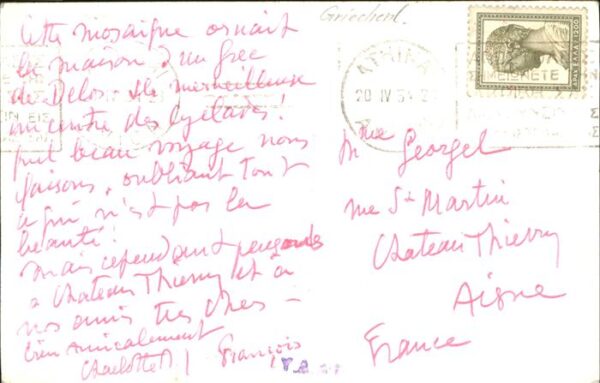 Griechenl.
Cette mosaïque ornait
la maison d'un grec
de Delos. Ile merveilleuse
au centre des Cyclades!
quel beau voyage nous
faisons, oubliant tout
ce qui n'est pas la
beauté!
mais cependant pensons
à Chateau Thierry et à
nos amis très chers —
bien amicalement
Charlotte François
ΑΘΗΝΑΙ
20 IV 54
Mme Georgel
rue St Martin
Chateau Thierry
Aisne
France